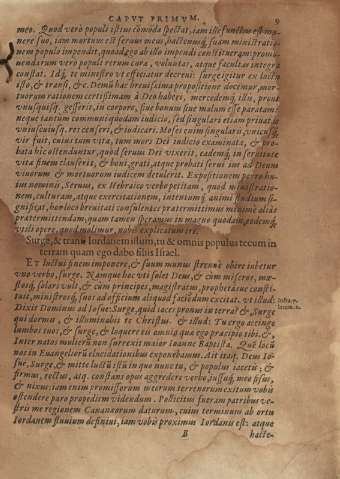 CAPVT PRIMVM. 9
meo. Quod verò populi istius commoda spectat, iam iste functus est munere
suo, iam mortuus est seruus meus, hactenusq́; suam ministrationem
populo impendit, quoad ego ab illo impendi constitueram: promouendarum
verò populi rerum cura, voluntas, atque facultas integra
constat. Idq́; te ministro vt efficiatur decreui: surge igitur ex luctu
isto, & transi, &c. Demũ hac breuissima propositione docemur, mortuorum
rationem certissimam à Deo haberi, mercedemq́; illis, prout
vnusquisq; gesserit, in corpore, siue bonum siue malum esse paratam:
neque tantum communi quodam iudicio, sed singulari etiam priuatim
vniuscuiusq. res censeri, & iudicari. Moses enim singularis, vnicusq́;
vir fuit, cuius tum vita, tum mors Dei iudicio examinata, & probata
hic ostenduntur, quod seruus Dei vixerit, eademq́; in seruitute
vita finem clauserit, & boni, grati, atque probati serui imago ad Deum
viuorum & mortuorum iudicem detulerit. Expositionem porrò huius
nominis, Seruus, ex Hebraico verbo petitam, quod ministrationem,
culturam, atque exercitationem, intentumq́; animi studium significat,
hoc loco breuitati consulentes praetermittimus
praetermittendam, quam tamen speramus in magno quodam,
vtili opere, quod molimur, nobis explicatum ire.
Surge, & transi Iordanem istum, tu & omnis populus tecum in
terram quam ego dabo filiis Israel.
ET luctui finem imponere, & suum munus strenuè obire iubetur
vno verbo, surge. Namque hac vti solet Deus, & cùm miseros, moestosq́;
solari vult, & cùm principes, magistratus, prophetasue constitutos,
ministrosq́; suos ad officium aliquod faciendum excitat. vt istud:
Dixit Dominus ad Iosue: Surge, quid iaces pronus in terra? &, Surge
qui dormis, & illuminabit te Christus. & illud: Tu ergo accinge
lumbos tuos, & surge, & loquere eis omnia quae ego praecipio tibi. &,
Inter natos mulierũ non surrexit maior Ioanne Baptista. Quae loca
nos in Euangeliorũ elucidationibus exponebamus. Ait itaq. Deus Iosue,
Surge, & mitte luctũ istũ in quo nunc tu, & populus iacetis: &
firmus, rectus, atq. constans opus aggredere verbo, iussuq́; meo fisus,
& nixus: iam enim promissorum meorum terrenorum exitum vobis
ostendere paro propediem videndum. Pollicitus fueram patribus vestris
me regionem Cananaeorum daturum, cuius terminum ab ortu
Iordanem fluuium definiui, iam vobis proximus Iordanis est: atque
B
hacte-